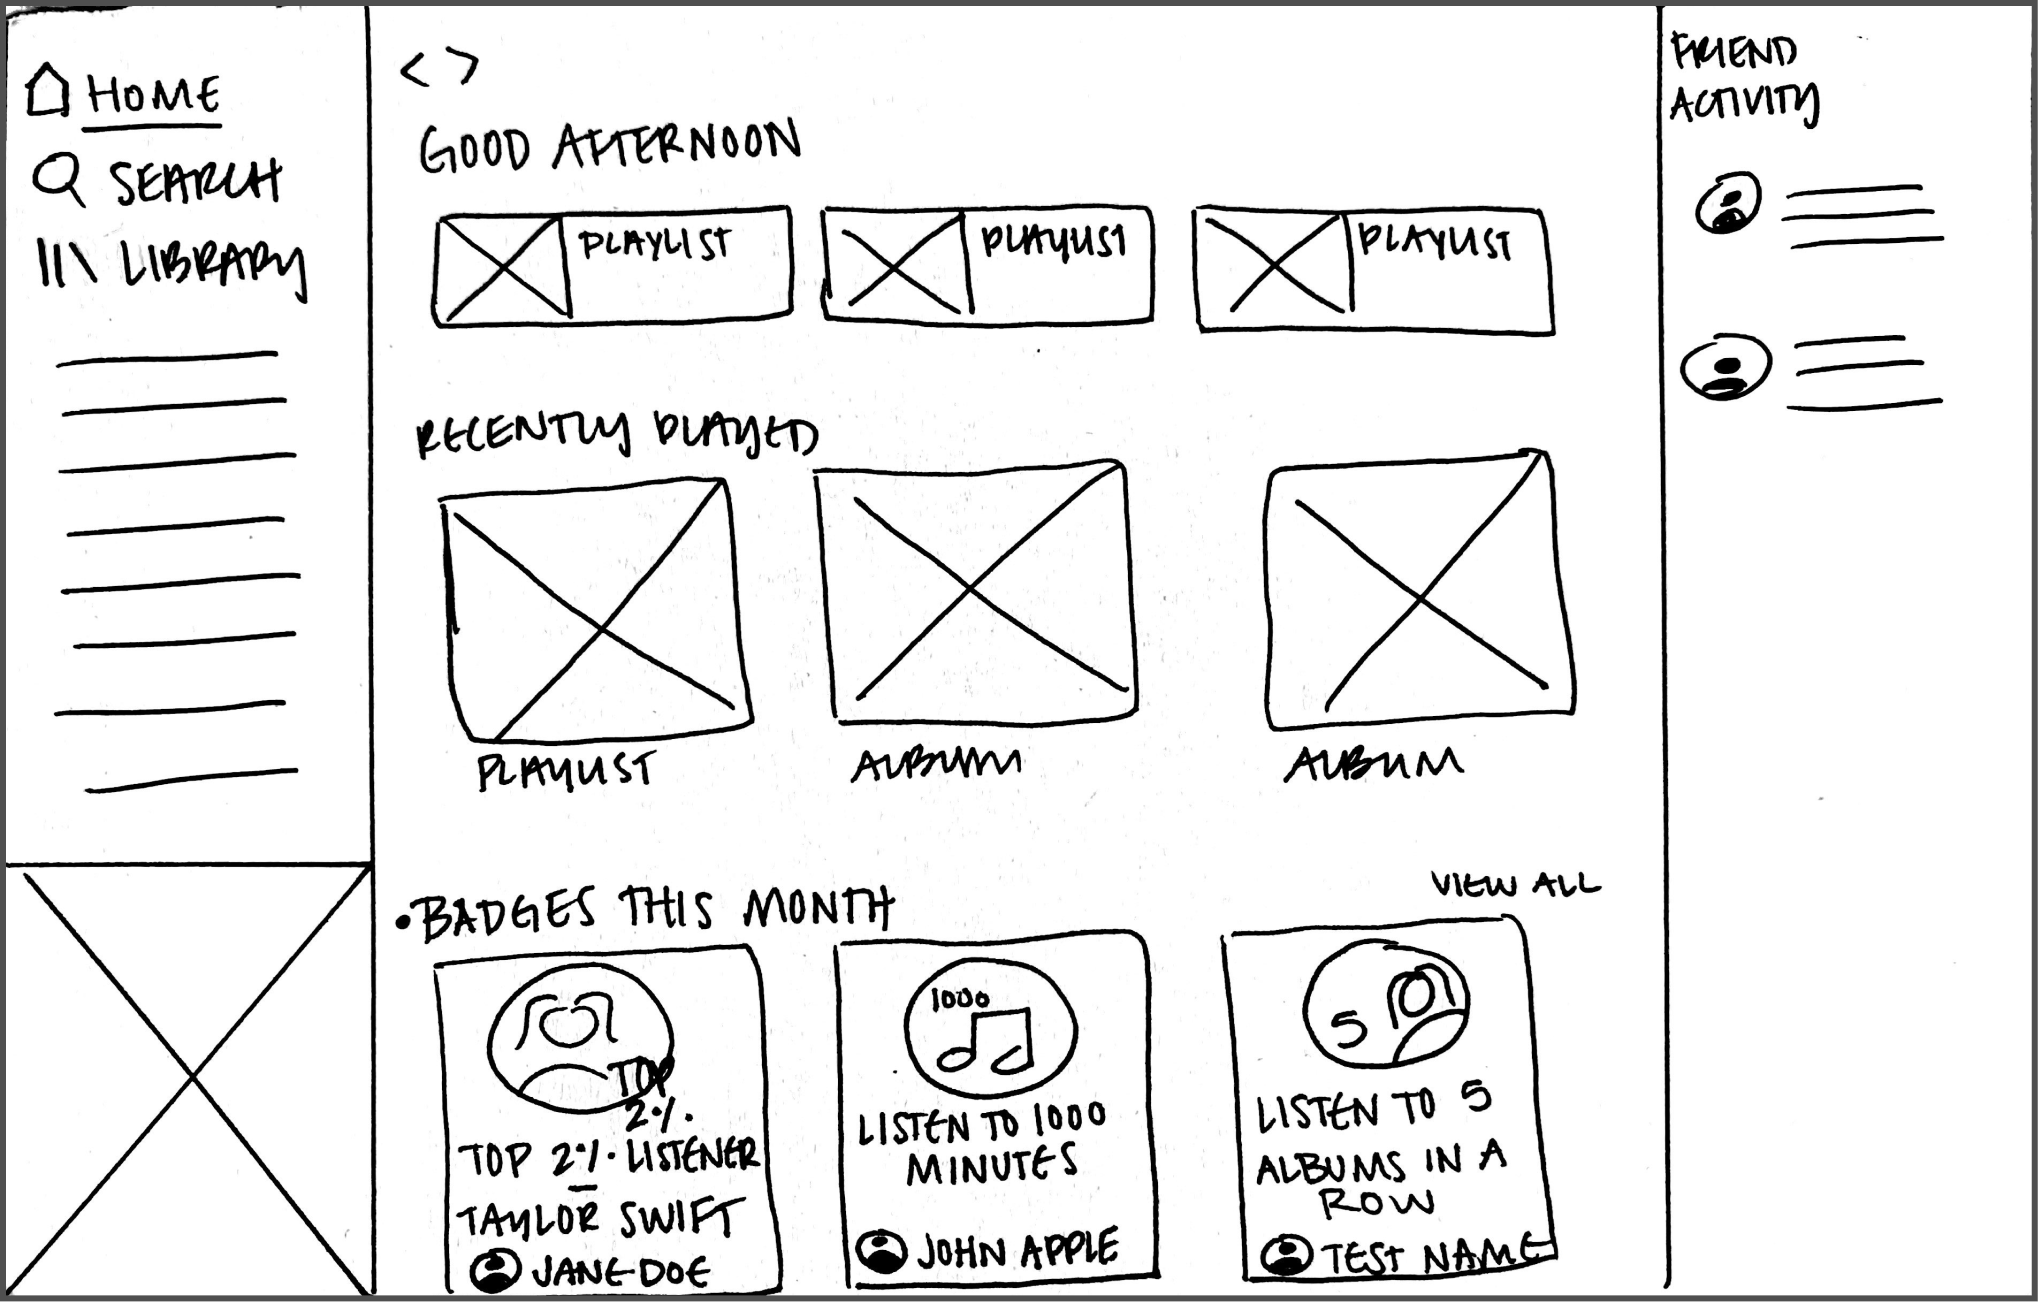 HOME
SEARCH
LIBRARY
< >
GOOD AFTERNOON
PLAYLIST
PLAYLIST
PLAYLIST
RECENTLY PLAYED
PLAYLIST
ALBUM
ALBUM
•BADGES THIS MONTH
VIEW ALL
TOP
2%
TOP 2% LISTENER
TAYLOR SWIFT
JANE DOE
1000
LISTEN TO 1000
MINUTES
JOHN APPLE
5
LISTEN TO 5
ALBUMS IN A
ROW
TEST NAME
FRIEND
ACTIVITY